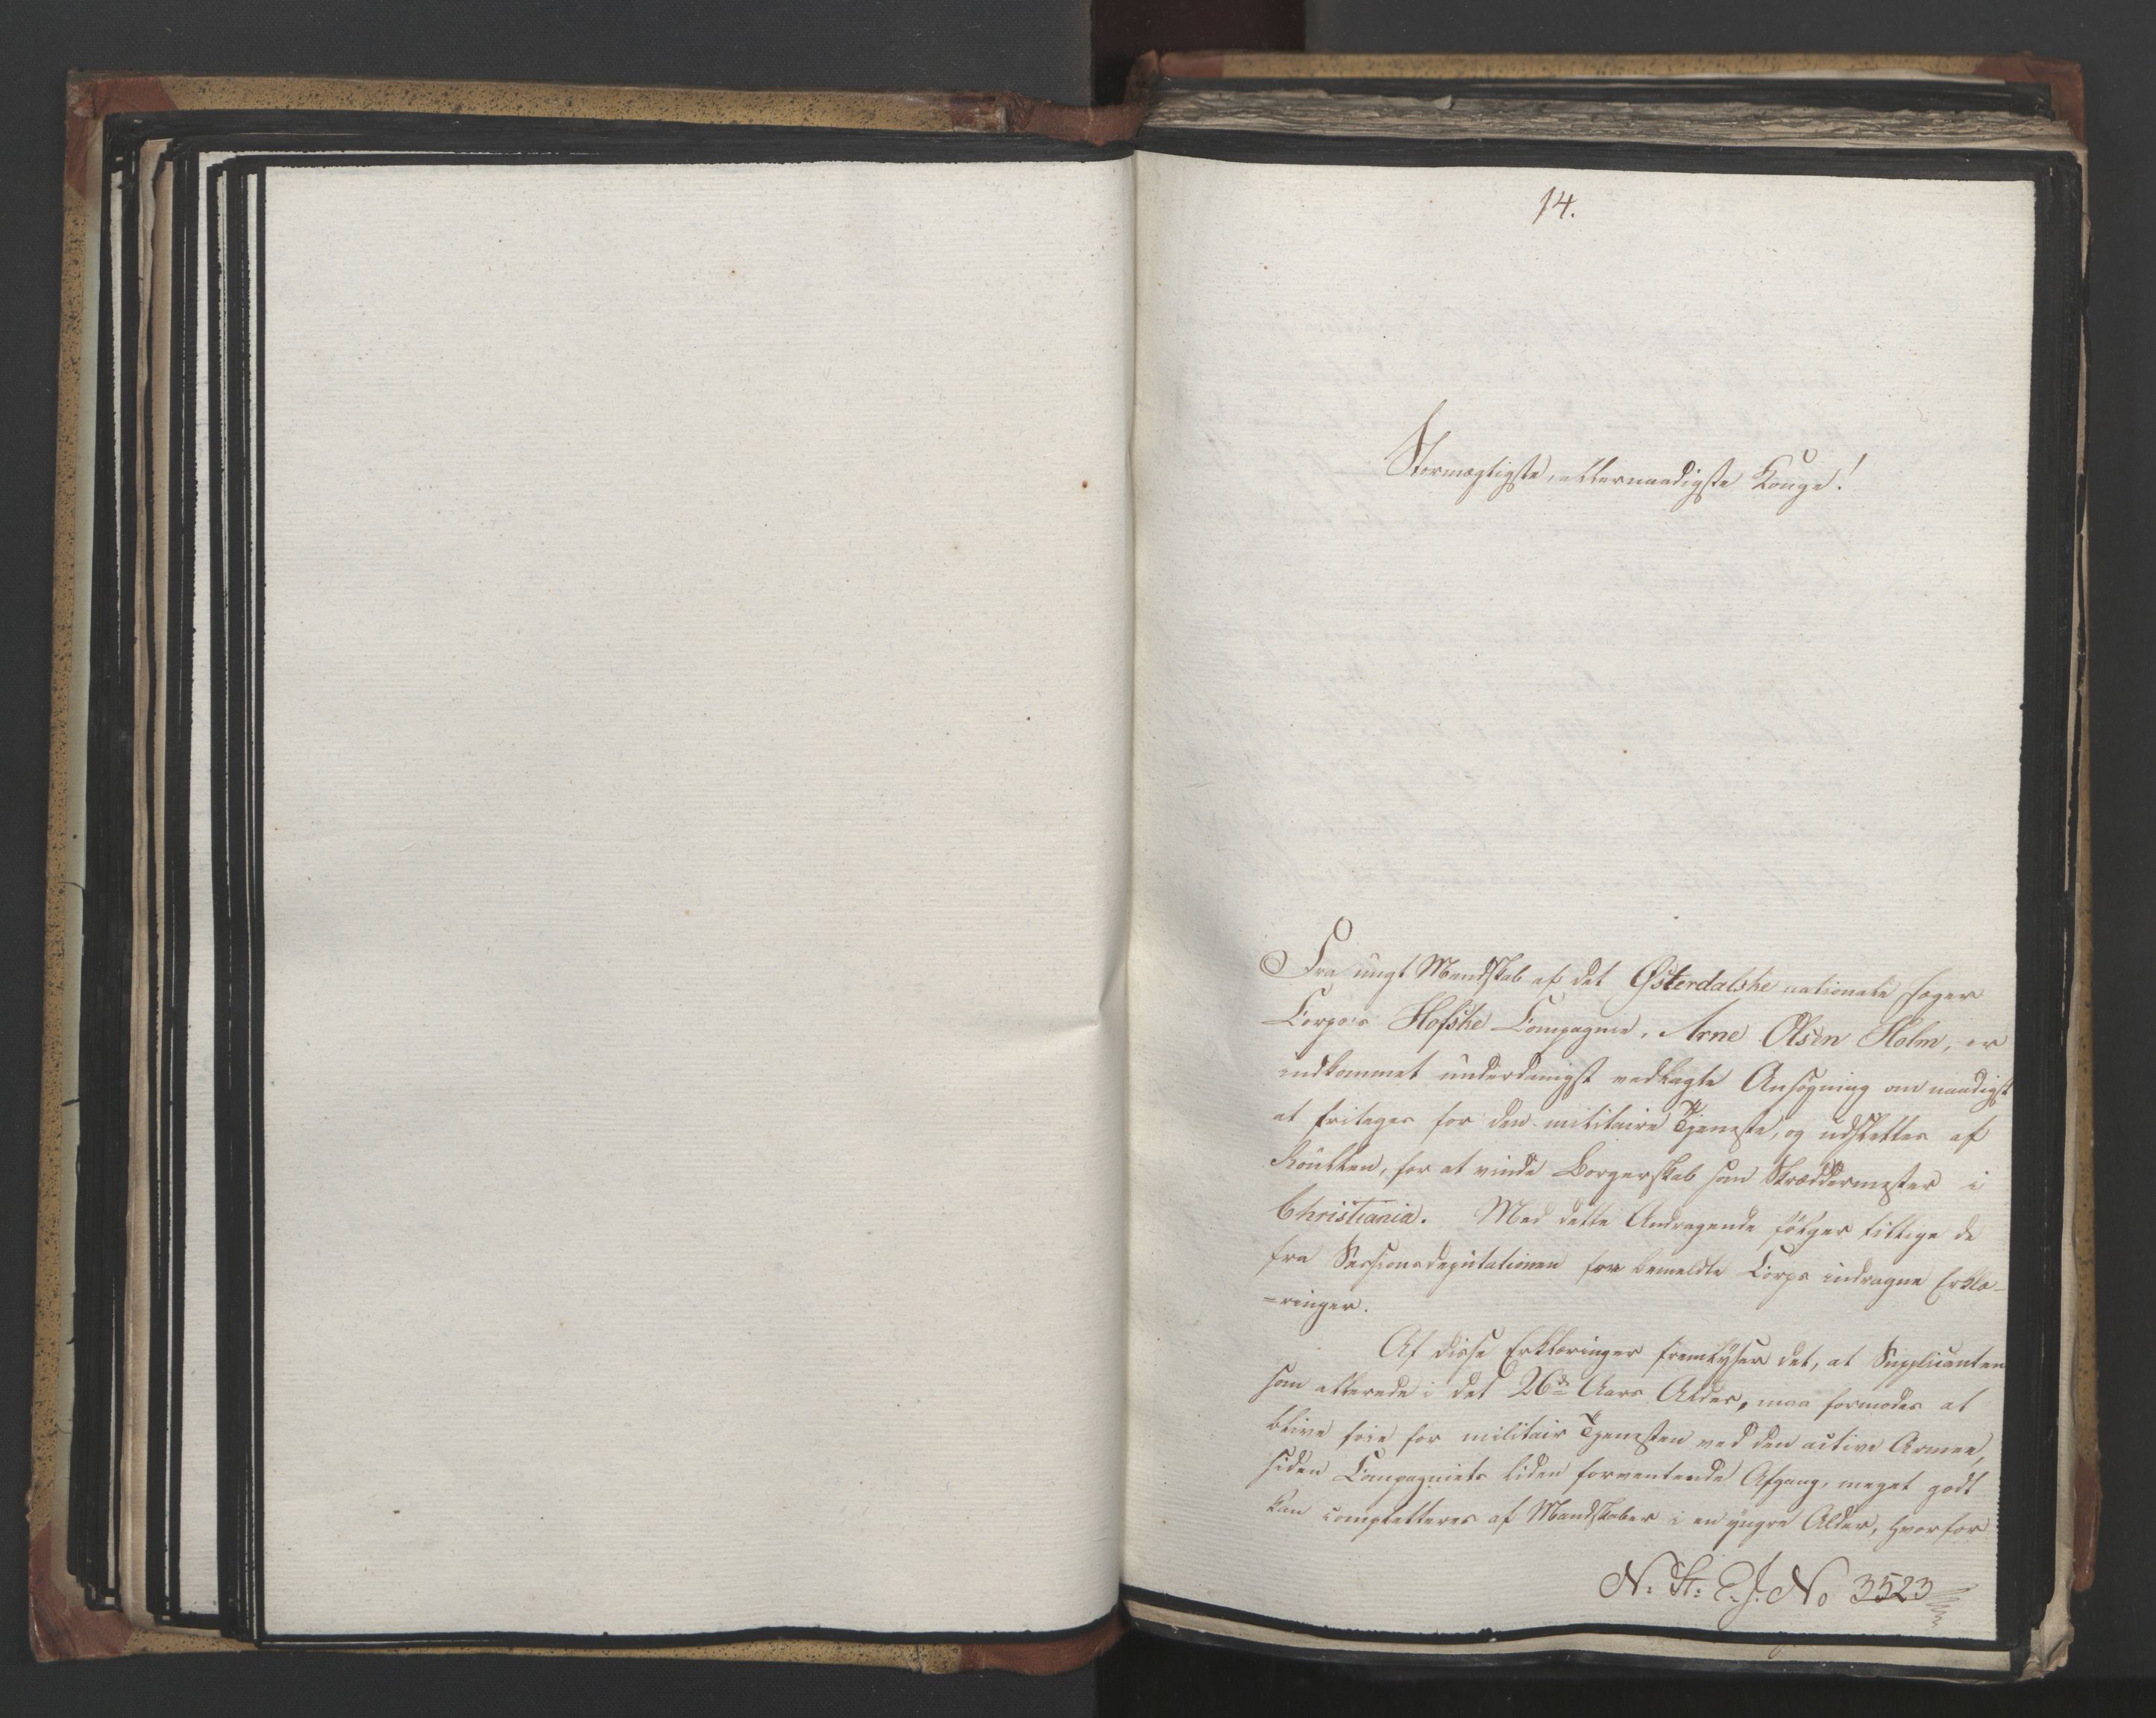 14.
Stormægtigste, allernaadigste Konge!
Fra ungt Mandskab af det Østerdalske nationale Jæger
Corps's Hofske Compagnie, Arne Olsen Holm, er
indkommet underdanigst vedlagte Ansøgning om naadigst
at fritages for den militaire Tjeneste, og udslettes af
Roullen, for at vinde Borgerskab som Skræddermester i
Christiania. Med dette Andragende følger tillige de
fra Sessionsdeputationen for bemeldte Corps inddragne Erklæ-
=ringer.
Af disse Erklæringer fremlyser det, at Supplicanten
som allerede i det 26de Aars Alder, maa formodes at
blive frie for militair Tjenesten ved den active Armee,
siden Compagniets liden forventende Afgang, meget godt
kan completteres af Mandskaber i en yngre Alder, hvorfor
N. St: E. J. No 3523